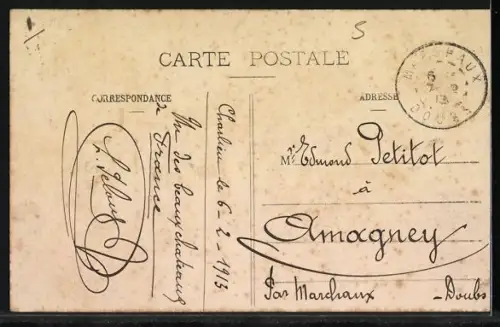 5
CARTE POSTALE
CORRESPONDANCE
ADRESSE
Charlieu le 6-2-1913
Un des beaux chateaux
de France
Mr Edmond Petitot
à
Amagney
Par Marchaux - Doubs
MARCHAUX
DOUBS